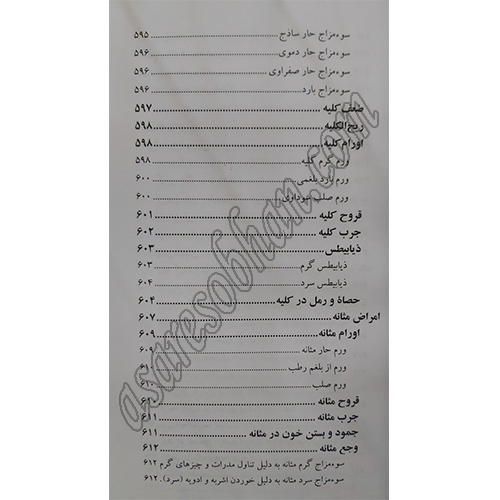 سوءمزاج حار ساذج ۵۹۵
سوءمزاج حار دموی ۵۹۶
سوءمزاج حار صفراوی ۵۹۶
سوءمزاج بارد ۵۹۶
ضعف کلیه ۵۹۷
ریح‌الکلیه ۵۹۸
اورام کلیه ۵۹۸
ورم گرم کلیه ۵۹۸
ورم بارد بلغمی ۶۰۰
ورم صلب سوداوی ۶۰۰
قروح کلیه ۶۰۱
جرب کلیه ۶۰۲
ذیابیطس ۶۰۳
ذیابیطس گرم ۶۰۳
ذیابیطس سرد ۶۰۴
حصاة و رمل در کلیه ۶۰۴
امراض مثانه ۶۰۷
اورام مثانه ۶۰۹
ورم حار مثانه ۶۰۹
ورم از بلغم رطب ۶۱۰
ورم صلب ۶۱۰
قروح مثانه ۶۱۰
جرب مثانه ۶۱۱
جمود و بستن خون در مثانه ۶۱۱
وجع مثانه ۶۱۲
سوءمزاج گرم مثانه به دلیل تناول مدرات و چیزهای گرم ۶۱۲
سوءمزاج سرد مثانه به دلیل خوردن اشربه و ادویه (سرد). ۶۱۲
asaresobhan.com